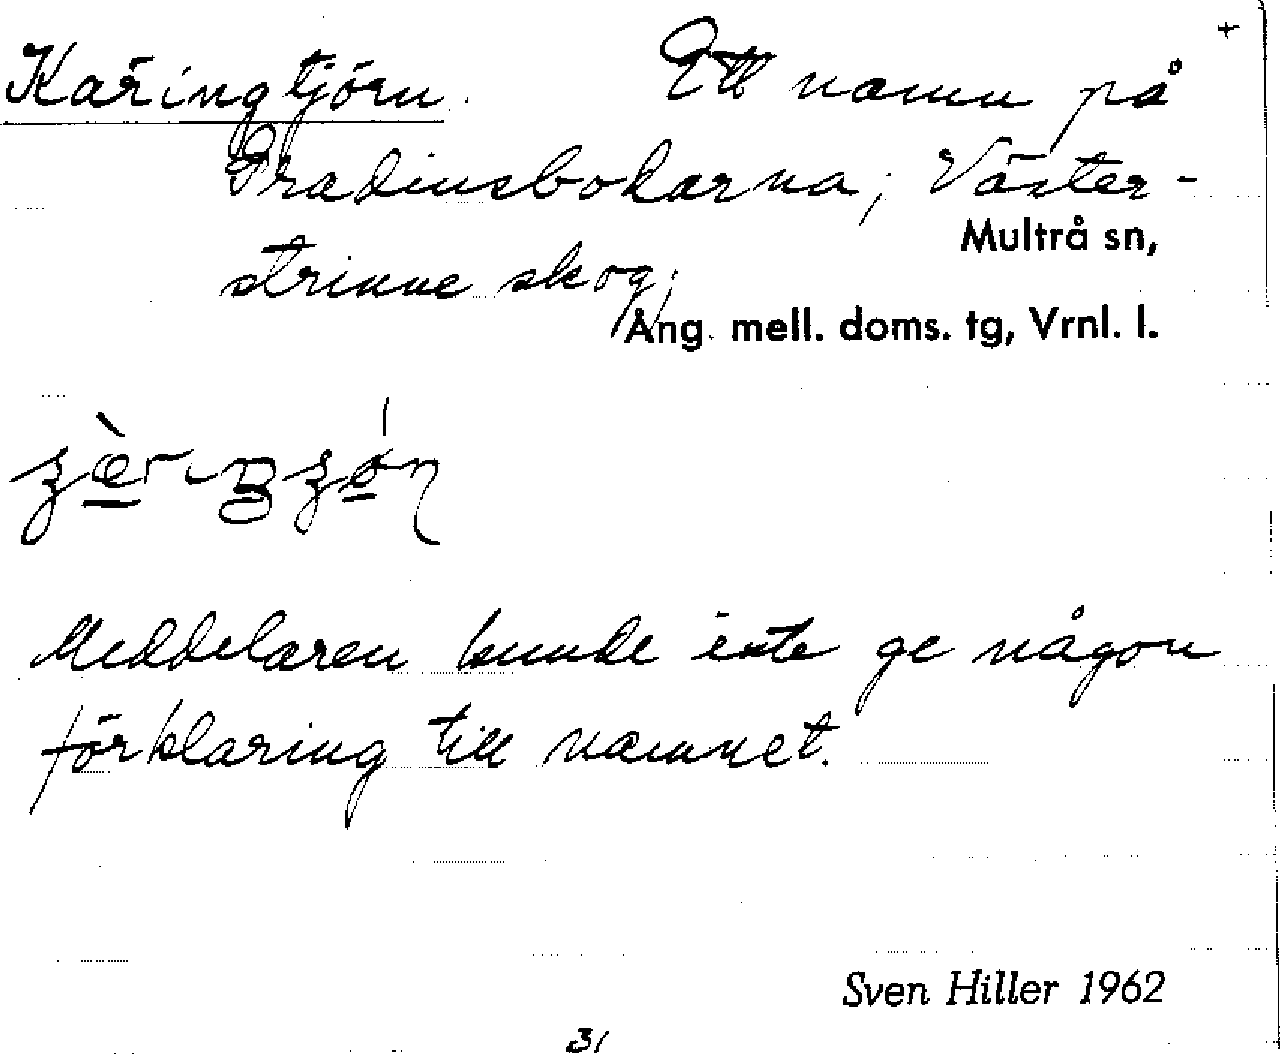 Käringtjörn. Ett namn på +
Gradinsbodarna; Väster-
Multrå sn,
strinne skog;
Ång. mell. doms. tg, Vrnl. l.
Meddelaren kunde inte ge någon
förklaring till namnet.
Sven Hiller 1962
31